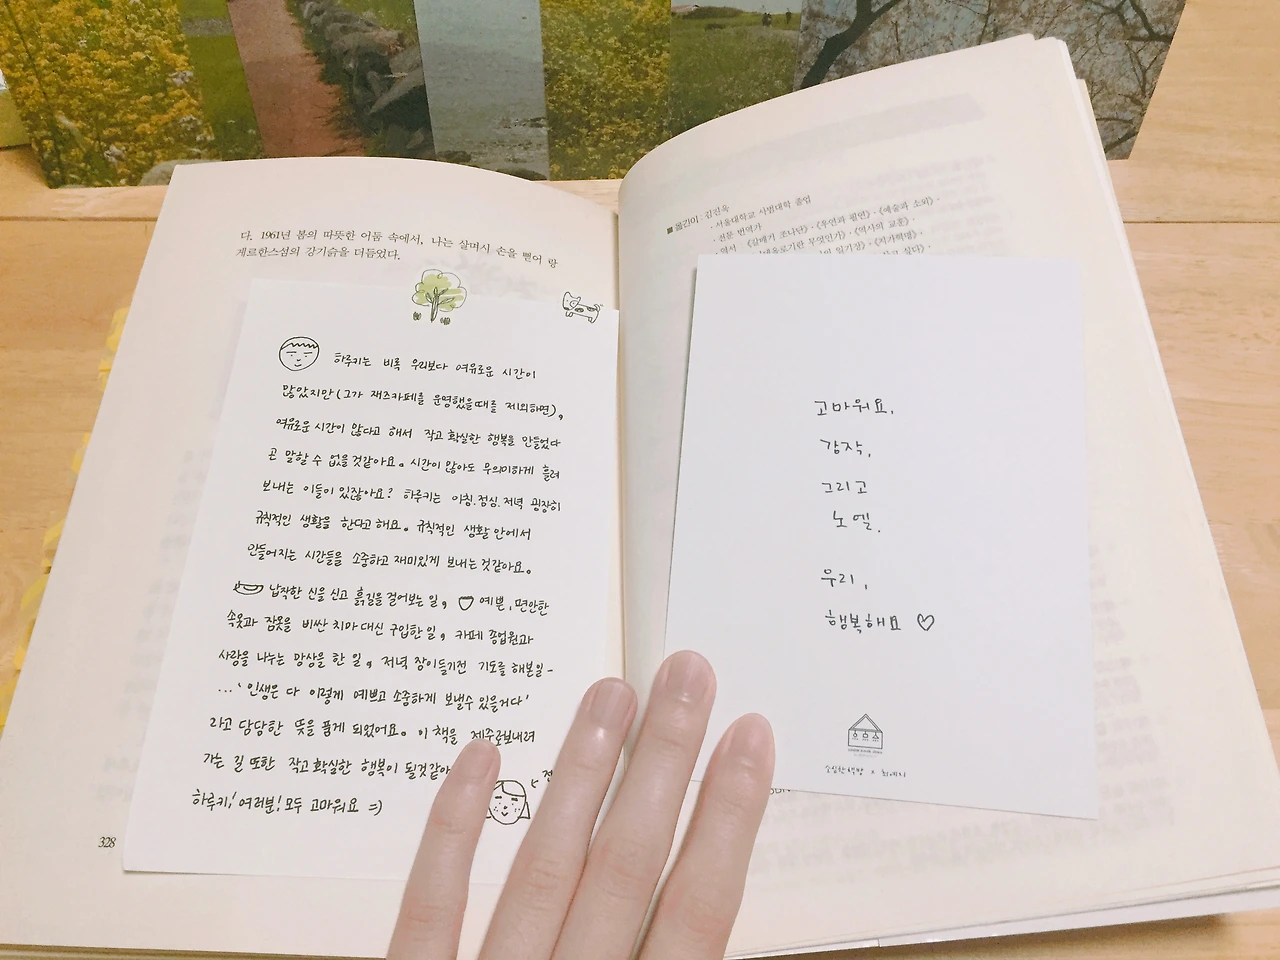 다. 1961년 봄의 따뜻한 어둠 속에서, 나는 살며시 손을 뻗어 랑
게르한스섬의 강기슭을 더듬었다.
하루키는 비록 우리보다 여유로운 시간이
많았지만(그가 재즈카페를 운영했을때를 제외하면),
여유로운 시간이 많다고 해서 작고 확실한 행복을 만들었다
곤 말할 수 없을것같아요. 시간이 많아도 무의미하게 흘려
보내는 이들이 있잖아요? 하루키는 아침.점심.저녁 굉장히
규칙적인 생활을 한다고 해요. 규칙적인 생활 안에서
만들어지는 시간들을 소중하고 재미있게 보내는것같아요.
납작한 신을 신고 흙길을 걸어보는 일, 예쁜, 편안한
속옷과 잠옷을 비싼 치마 대신 구입한 일, 카페 종업원과
사랑을 나누는 망상을 한 일, 저녁 잠이들기전 기도를 해본일-
...'인생은 다 이렇게 예쁘고 소중하게 보낼수 있을거다'
라고 담담한 뜻을 품게 되었어요. 이 책을 제주로보내려
가는 길 또한 작고 확실한 행복이 될것같아
하루키! 여러분! 모두 고마워요 =)
328
■ 옮긴이 : 김진욱
· 서울대학교 사범대학 졸업
· 전문 번역가
· 역서 《갈매기 조나단》·《우연과 필연》·《예술과 소외》·
무엇인가》·《역사의 교훈》
일기장》·《자가혁명》·
고마워요.
감자,
그리고
노엘.
우리,
행복해요 ♡
소심한책방 × 최예지